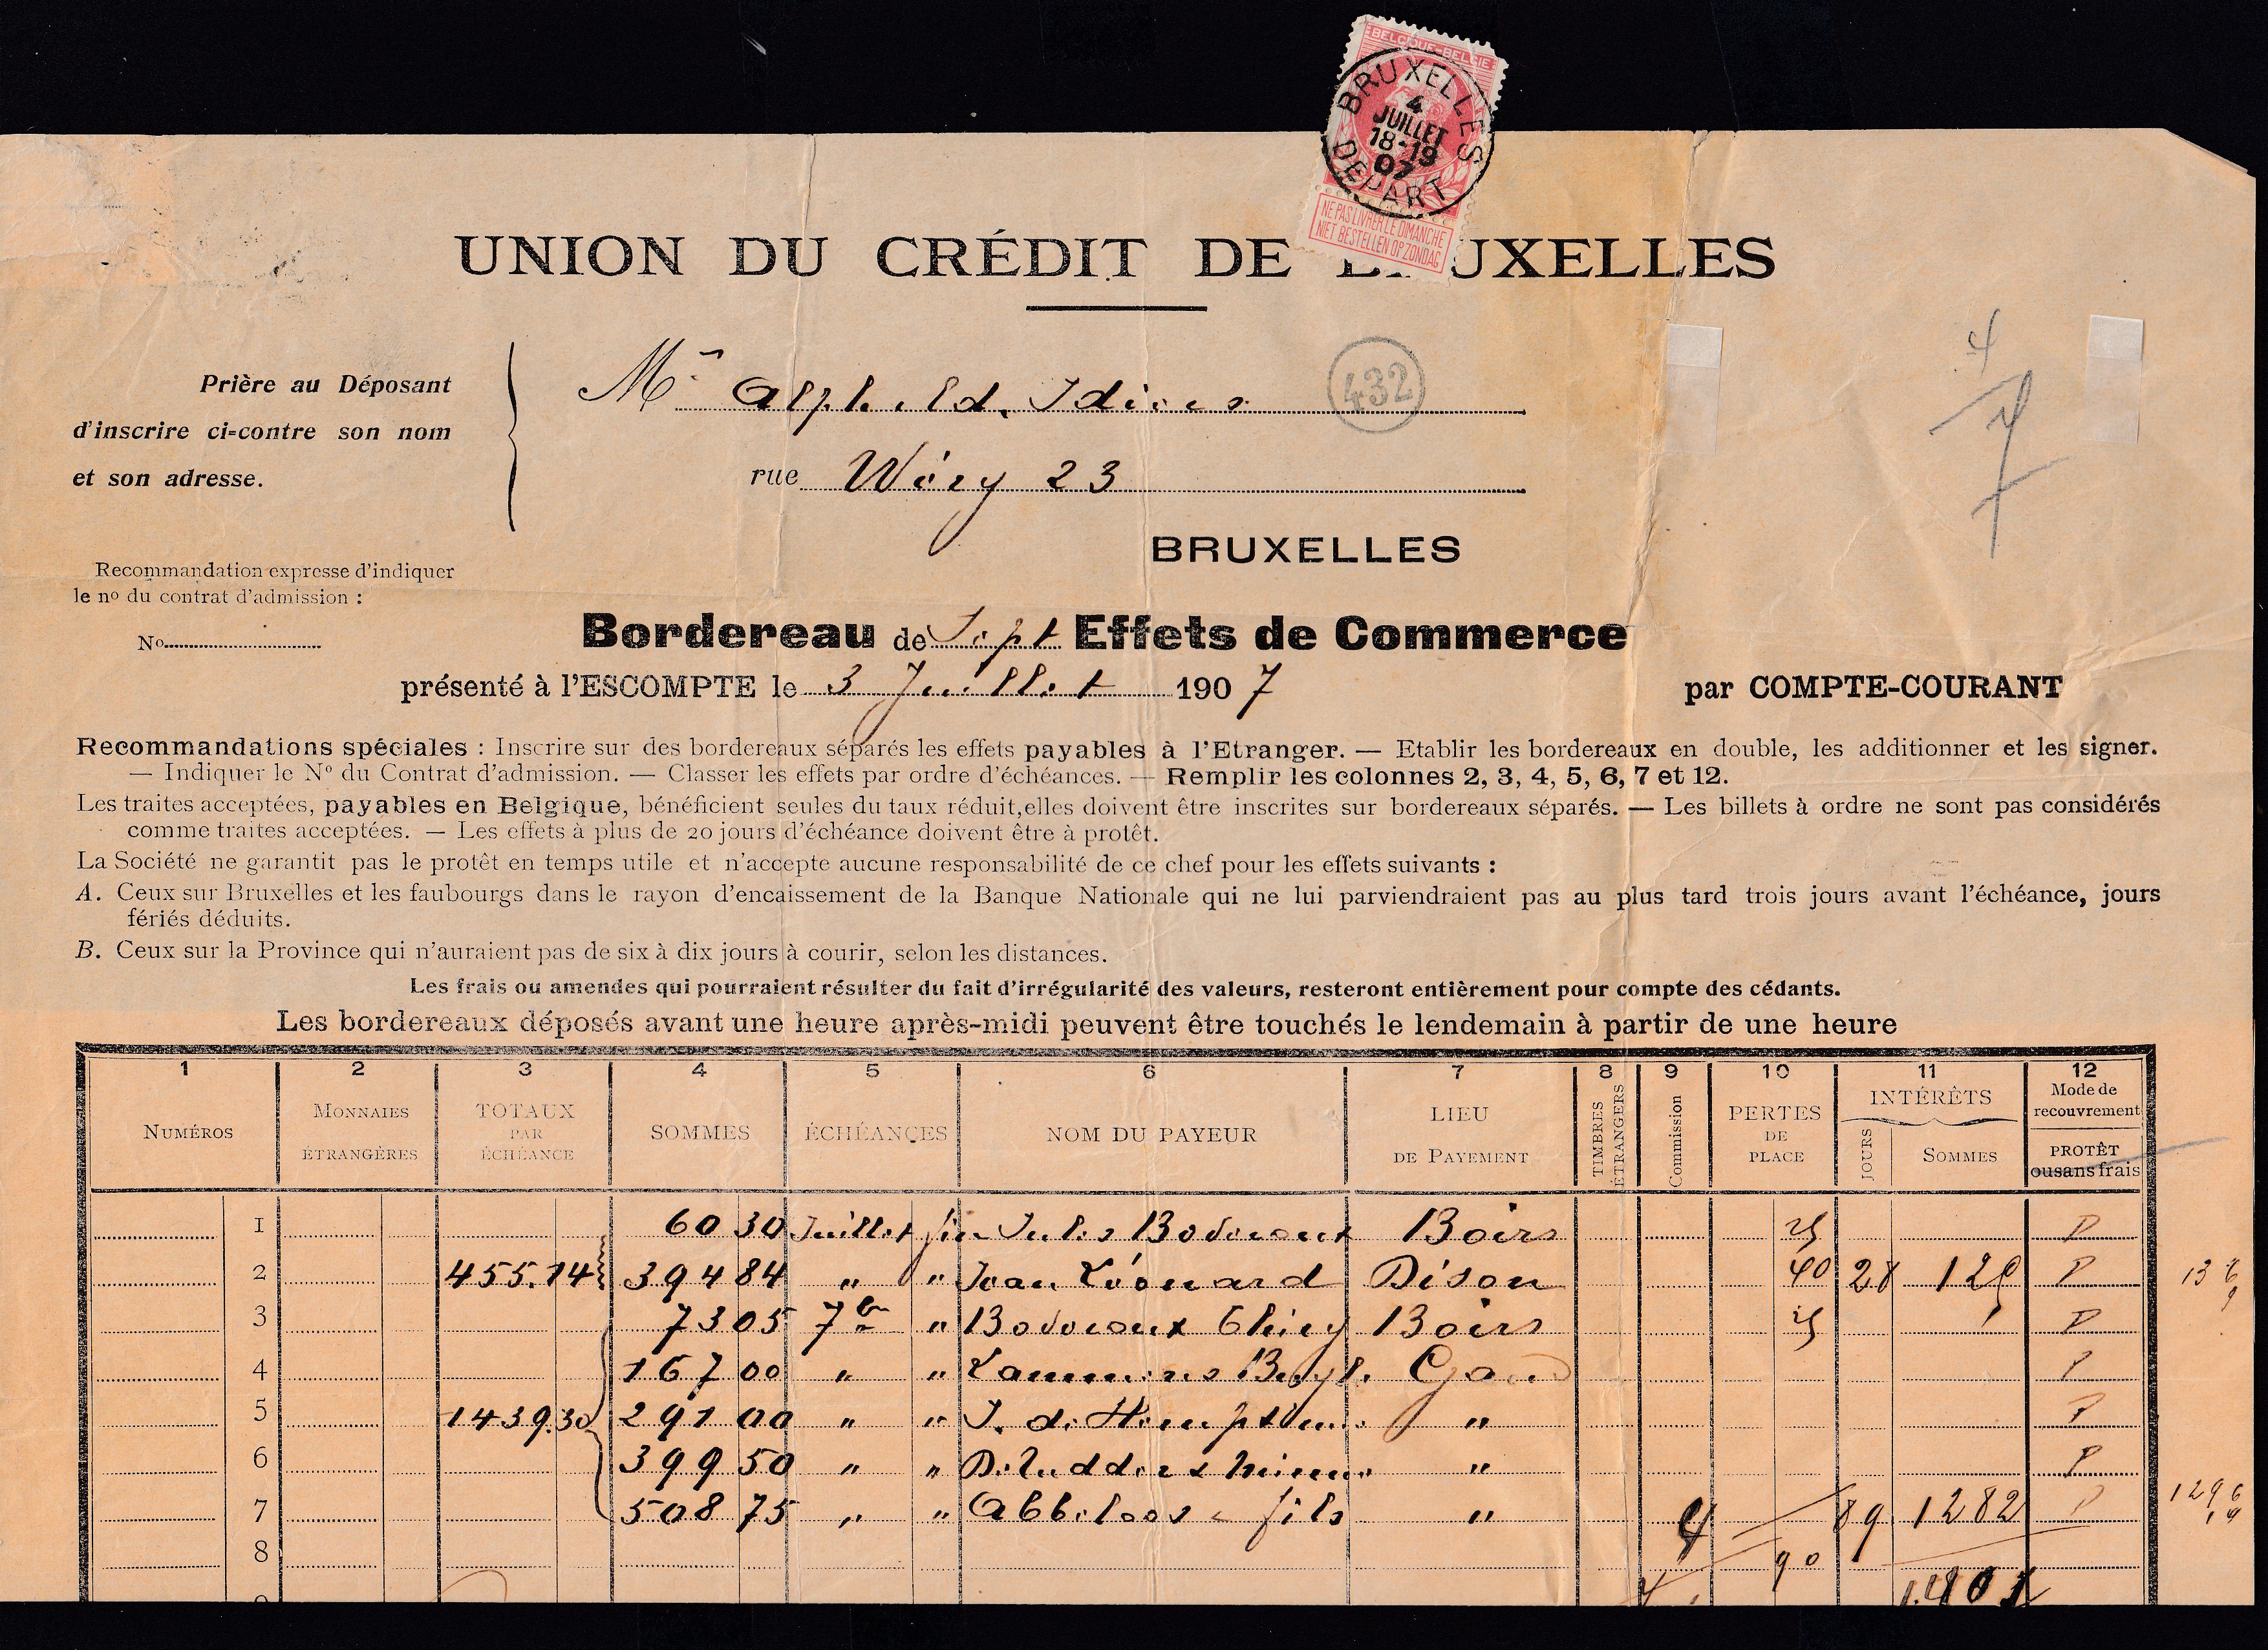 BELGIQUE-BELGIE
BRUXELLES
4
JUILLET
18-19
07
DEPART
NE PAS LIVRER LE DIMANCHE
NIET BESTELLEN OP ZONDAG
UNION DU CRÉDIT DE BRUXELLES
Prière au Déposant
d'inscrire ci-contre son nom
et son adresse.
Mr
432
4
7
rue Wéry 23
BRUXELLES
Recommandation expresse d'indiquer
le no du contrat d'admission :
No
Bordereau de Sept Effets de Commerce
présenté à l'ESCOMPTE le 3 Juillet 1907 par COMPTE-COURANT
Recommandations spéciales : Inscrire sur des bordereaux séparés les effets payables à l'Etranger. — Etablir les bordereaux en double, les additionner et les signer.
— Indiquer le No du Contrat d'admission. — Classer les effets par ordre d'échéances. — Remplir les colonnes 2, 3, 4, 5, 6, 7 et 12.
Les traites acceptées, payables en Belgique, bénéficient seules du taux réduit, elles doivent être inscrites sur bordereaux séparés. — Les billets à ordre ne sont pas considérés
comme traites acceptées. — Les effets à plus de 20 jours d'échéance doivent être à protêt.
La Société ne garantit pas le protêt en temps utile et n'accepte aucune responsabilité de ce chef pour les effets suivants :
A. Ceux sur Bruxelles et les faubourgs dans le rayon d'encaissement de la Banque Nationale qui ne lui parviendraient pas au plus tard trois jours avant l'échéance, jours
fériés déduits.
B. Ceux sur la Province qui n'auraient pas de six à dix jours à courir, selon les distances.
Les frais ou amendes qui pourraient résulter du fait d'irrégularité des valeurs, resteront entièrement pour compte des cédants.
Les bordereaux déposés avant une heure après-midi peuvent être touchés le lendemain à partir de une heure
1 2 3 4 5 6 7 8 9 10 11 12
NUMÉROS
MONNAIES ÉTRANGÈRES
TOTAUX PAR ÉCHÉANCE
SOMMES
ÉCHÉANCES
NOM DU PAYEUR
LIEU DE PAYEMENT
TIMBRES ÉTRANGERS
Commission
PERTES DE PLACE
INTÉRÊTS
JOURS
SOMMES
Mode de recouvrement
PROTÊT ou sans frais
1 60 30 Juillet fin Jules Boirs P
2 455.14 394 84 " " Jean Léonard Dison 40 28 P
3 73 05 7bre " Boirs P
4 167 00 " " Gand P
5 1439.30 291 00 " " " P
6 399 50 " " " P
7 508 75 " " Abbeloos & fils " 4 89 1282 P
8 90